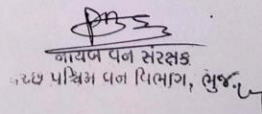 નાયબ વન સંરક્ષક
કચ્છ પશ્ચિમ વન વિભાગ, ભુજ.